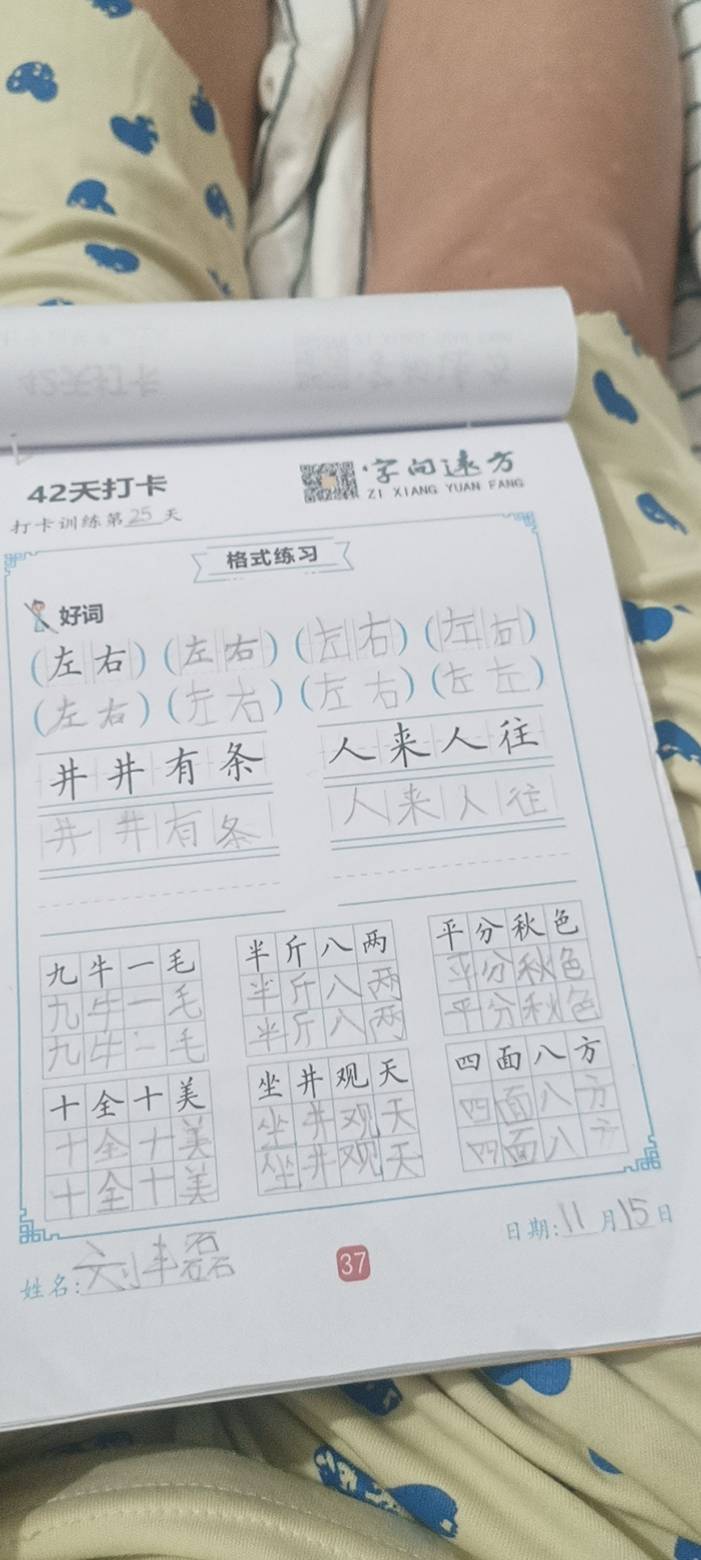 42天打卡
字向远方
ZI XIANG YUAN FANG
打卡训练第25天
格式练习
好词
(左右) (左右) (左右) (左右)
(左右) (左右) (左右) (左左)
井井有条 人来人往
井井有条 人来人往
九牛一毛 半斤八两 平分秋色
九牛一毛 半斤八两 平分秋色
九牛二毛 半斤八两 平分秋色
十全十美 坐井观天 四面八方
十全十美 坐井观天 四面八方
十全十美 坐井观天 四面八方
姓名:刘丰磊
37
日期:11月15日